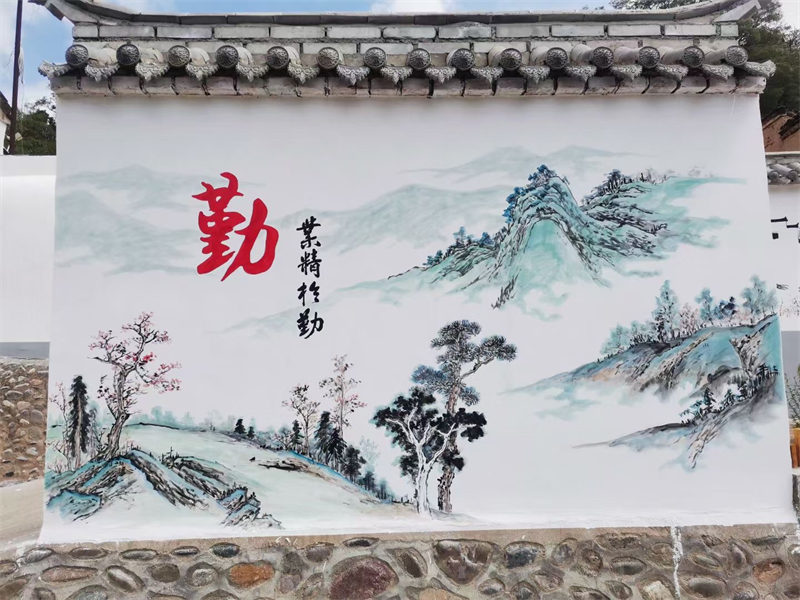 勤
業精於勤